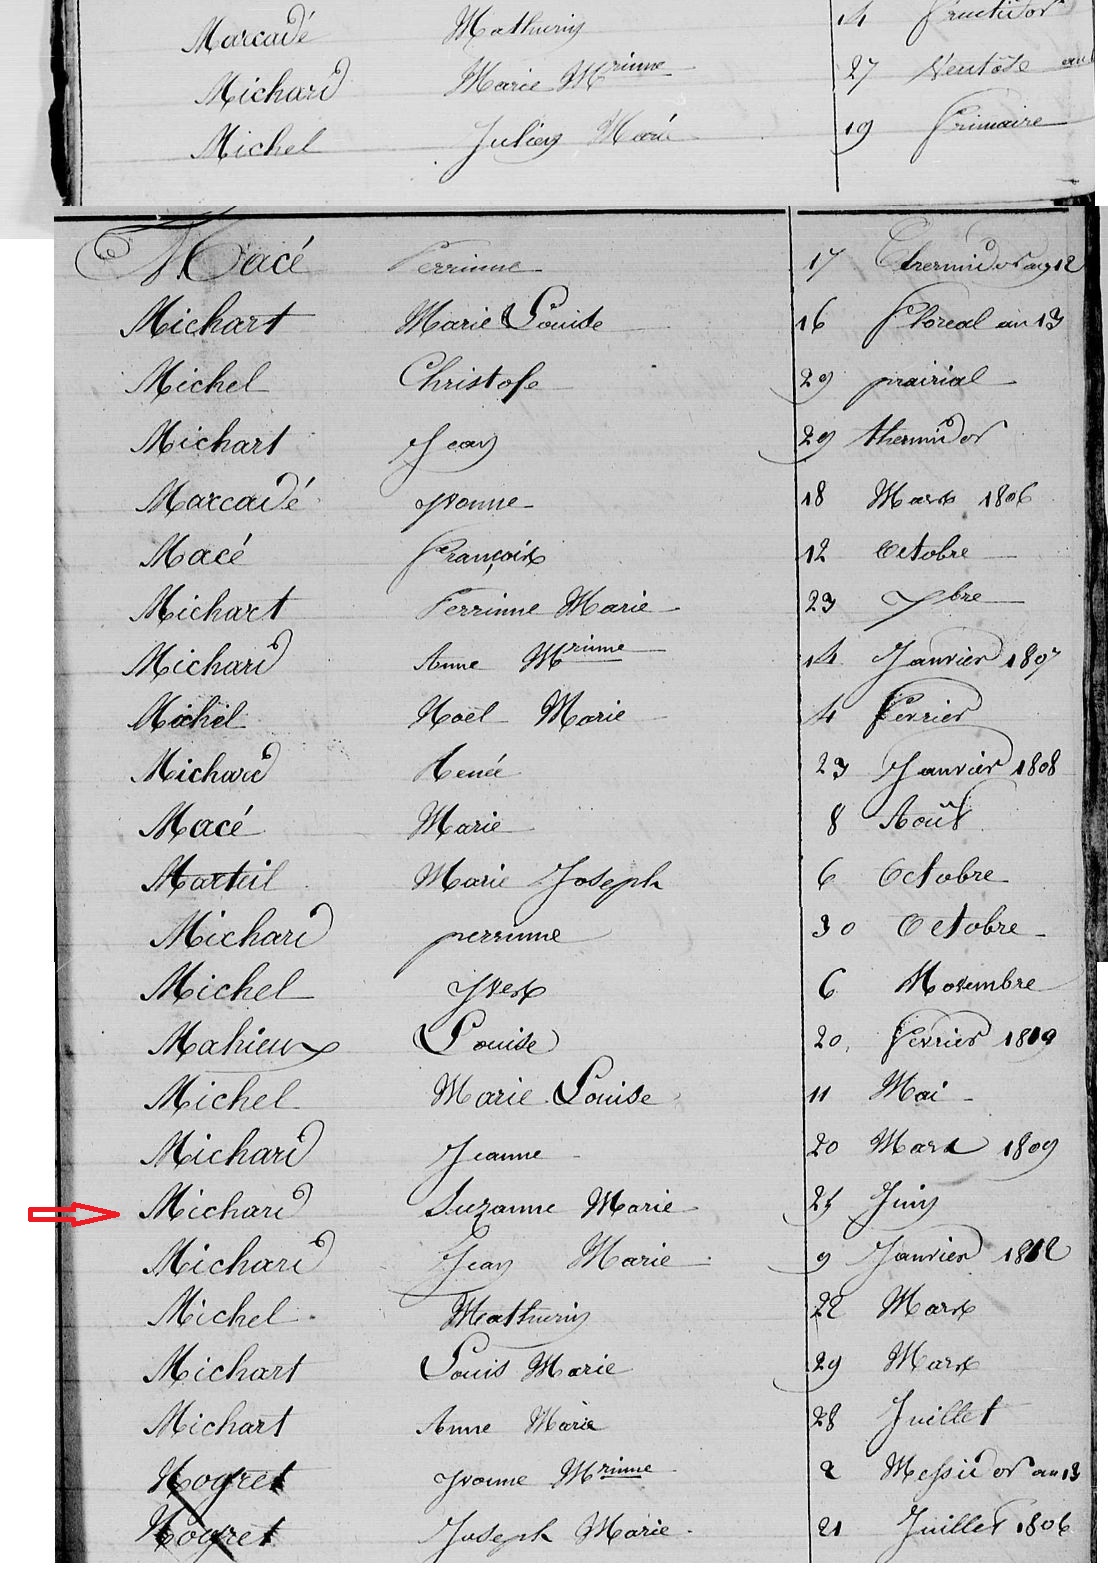 Marcadé Mathurin 14 fructidor
Michard Marie Mrinne 27 Ventôse an
Michel Julien Marie 19 frimaire
Macé Perrinne 17 thermidor an 12
Michart Marie Louise 16 floreal an 13
Michel Christofe 29 prairial
Michart Jean 29 thermidor
Marcadé yvonne 18 Mars 1806
Macé françois 12 Octobre
Michart Perrinne Marie 23 7bre
Michard Anne Mrinne 14 Janvier 1807
Michel Noël Marie 4 fevrier
Michard Renée 23 Janvier 1808
Macé Marie 8 Août
Marteil Marie Joseph 6 Octobre
Michard perrinne 30 Octobre
Michel yves 6 Novembre
Mahieux Louise 20 fevrier 1819
Michel Marie Louise 11 Mai
Michard Jeanne 20 Mars 1809
Michard Suzanne Marie 25 Juin
Michard Jean Marie 9 Janvier 1812
Michel Mathurin 22 Mars
Michart Louis Marie 29 Mars
Michart Anne Marie 28 Juillet
Nogret yvonne Mrinne 2 Messidor an 13
Nogret Joseph Marie 21 Juillet 1806